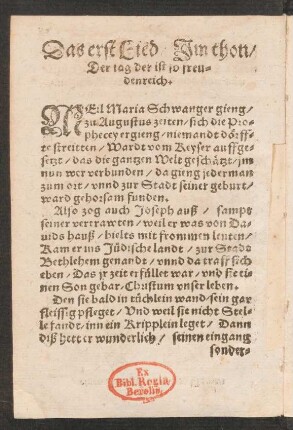 Das erst Lied / Im thon /
Der tag der ist so freu-
denreich.
WEil Maria Schwanger gieng /
zu Augustus zeiten / sich die Pro-
phecey ergieng / niemandt dörff-
te streitten / Wardt vom Keyser auffge-
setzt / das die gantzen Welt geschätzt / jm
nun wer verbunden / da gieng jederman
zum ort / vnnd zur Stadt seiner geburt /
ward gehorsam funden.
Also zog auch Joseph auß / sampt
seiner vertrawten / weil er was von Da-
uids hauß / hielts mit frommen leuten /
Kam er ins Jüdische landt / zur Stadt
Bethlehem genandt / vnnd da traff sichs
eben / Das jr zeit erfüllet war / vnd sie ei-
nen Son gebar / Christum vnser leben.
Den sie bald in tücklein wand / sein gar
fleissig pfleget / Vnd weil sie nicht Stel-
le fandt / inn ein Kripplein leget / Dann
diß hett er wunderlich / seinen eingang
sonder-
Ex
Bibl. Regia
Berolin.